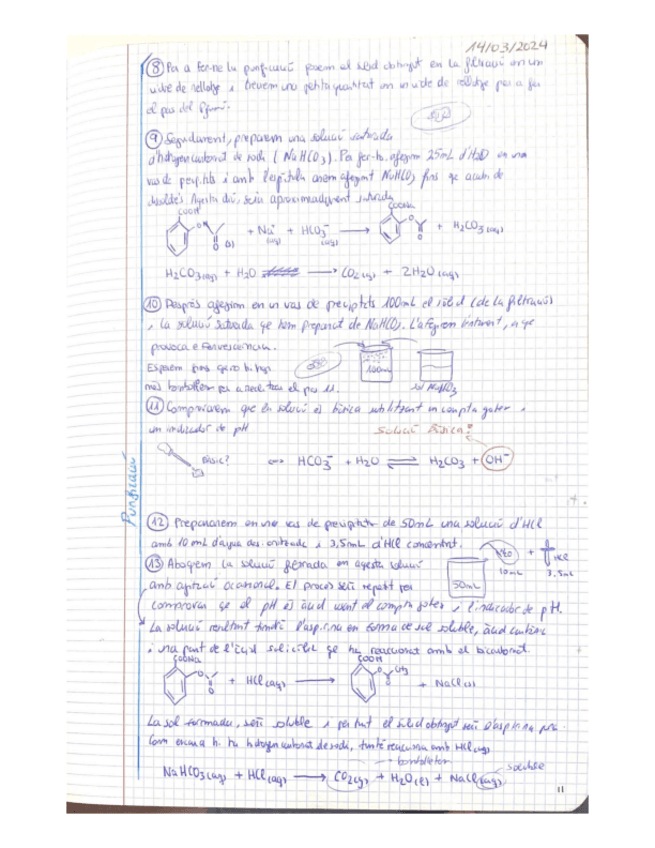 14/03/2024
⑧ Per a fer-ne la purificació posem el sòlid obtingut en la filtració en un
vidre de rellotge i una petita quantitat en un vidre de rellotge per a fer
el pas del
⑨ Seguidament, preparem una solució saturada
d'hidrogencarbonat de sodi (NaHCO3). Per fer-ho, afegim 25mL d'H2O en un
vas de precipitats i amb l'espàtula anem afegint NaHCO3 fins que
aproximadament saturada
COOH
COONa
(s) + Na+ (aq) + HCO3- (aq) ⟶ + H2CO3 (aq)
H2CO3 (aq) + H2O ⟶ CO2 (g) + 2H2O (aq)
⑩ Després afegim en un vas de precipitats 100mL el sòlid (de la filtració)
i la solució saturada que hem preparat de NaHCO3. L'afegirem lentament, ja que
provoca efervescència.
Esperem fins que no hi hagi
més bombolles per a el pas 11.
100mL
NaHCO3
⑪ Comprovarem que la solució és bàsica utilitzant un compta gotes i
un indicador de pH
Solució Bàsica?
Bàsic?
HCO3- + H2O ⇌ H2CO3 + OH-
Purificació
⑫ Prepararem en un vas de precipitats de 50mL una solució d'HCl
amb 10 mL d'aigua desionitzada i 3,5mL d'HCl concentrat.
H2O + HCl
10mL 3,5mL
50mL
⑬ Aboquem la solució filtrada en aquesta solució
amb agitació ocasional. El procés serà repetit per
comprovar que el pH és àcid usant el compta gotes i l'indicador de pH.
La solució resultant tindrà l'aspirina en forma de sal soluble,
i una part de l'àcid salicílic que ha reaccionat amb el bicarbonat.
COONa
COOH
+ HCl (aq) ⟶ CH3 + NaCl (s)
La sal formada, serà soluble i per tant el sòlid obtingut serà l'aspirina pura.
Com encara hi ha hidrogencarbonat de sodi, també reacciona amb HCl (aq)
bombolletes
soluble
NaHCO3 (aq) + HCl (aq) ⟶ CO2 (g) + H2O (l) + NaCl (aq)
11